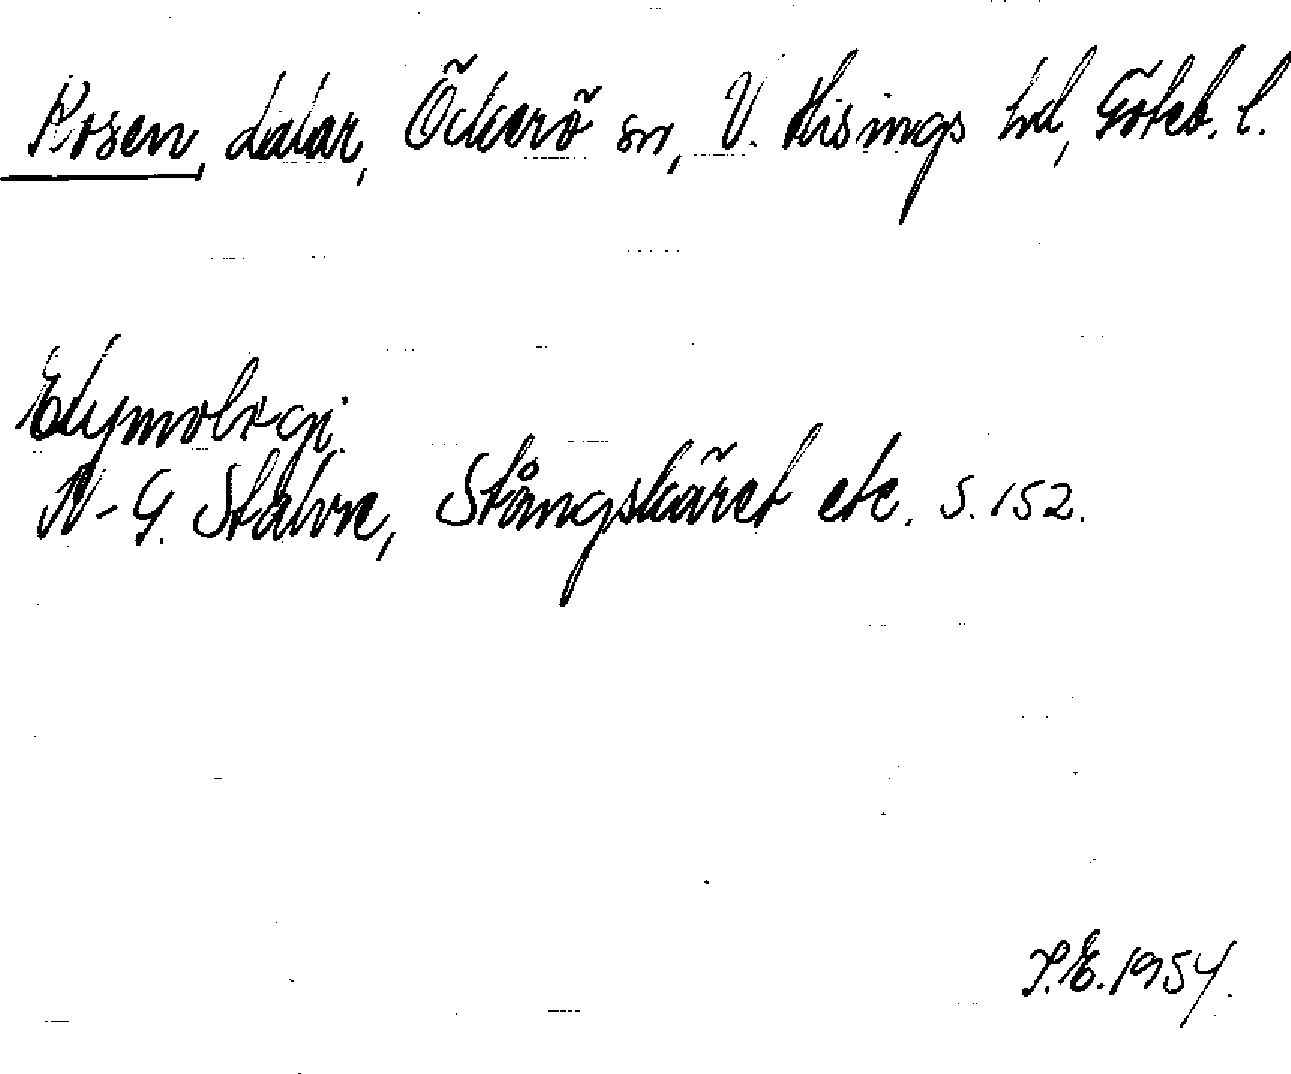 Rosen, dalar, Öckerö sn, V. Hisings hd, Göteb. l.
Etymologi.
N-G. Stahre, Stångskäret etc. S. 152.
P.E. 1954.